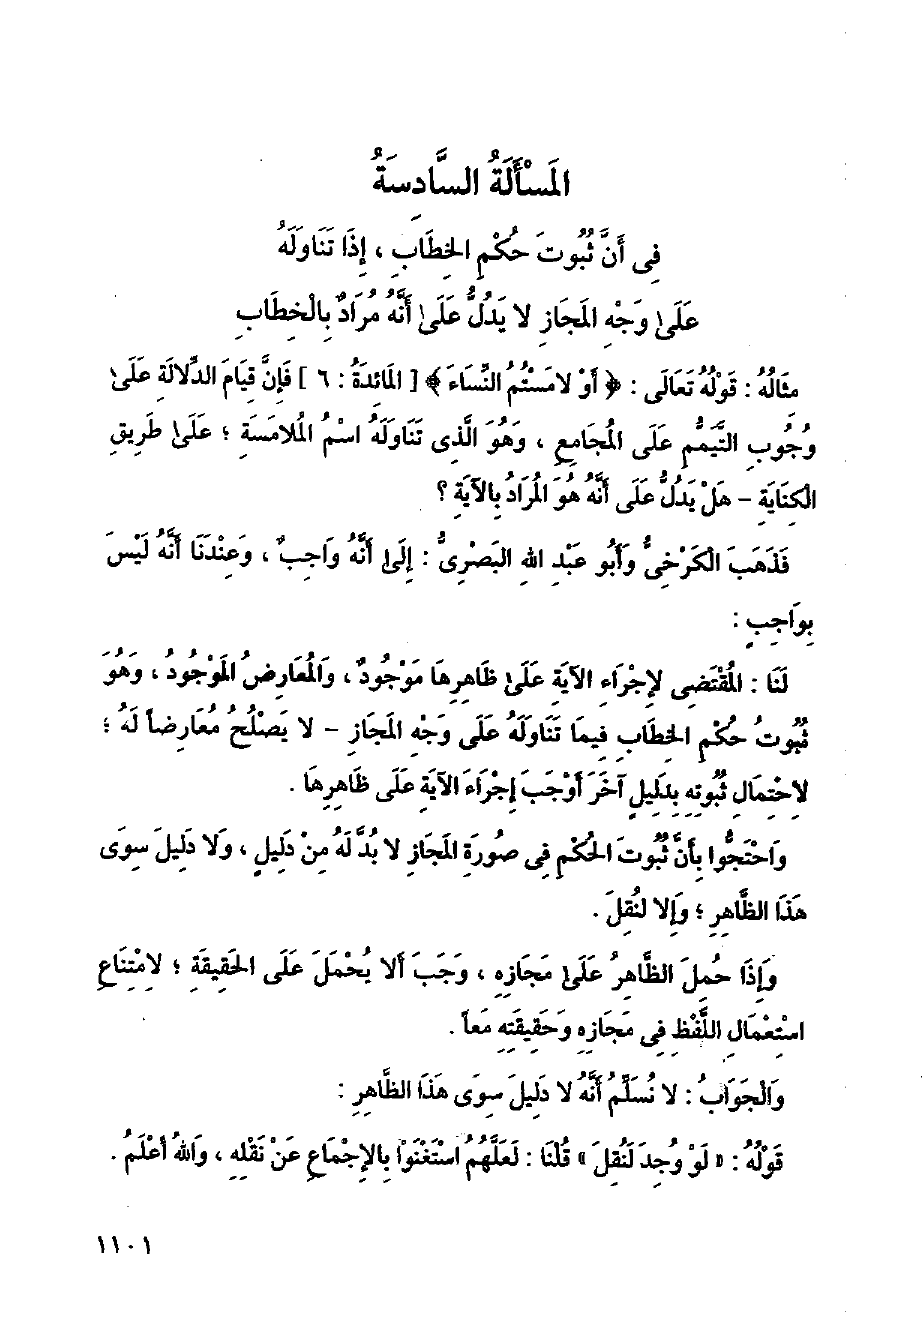 المَسْأَلَةُ السَّادِسَةُ
فِى أَنَّ ثُبُوتَ حُكْمِ الخِطَابِ ، إِذَا تَنَاوَلَهُ
عَلَىٰ وَجْهِ المَجَازِ لا يَدُلُّ عَلَىٰ أَنَّهُ مُرَادٌ بِالْخِطَابِ
مِثَالُهُ : قَوْلُهُ تَعَالَى : ﴿ أَوْ لامَسْتُمُ النِّسَاءَ ﴾ [ المَائِدَةُ : ٦ ] فَإِنَّ قِيَامَ الدِّلالَةِ عَلَىٰ
وُجُوبِ التَّيَمُّمِ عَلَى المُجَامِعِ ، وَهُوَ الَّذِى تَنَاوَلَهُ اسْمُ المُلامَسَةِ ؛ عَلَىٰ طَرِيقِ
الكِنَايَةِ – هَلْ يَدُلُّ عَلَى أَنَّهُ هُوَ المُرَادُ بِالآيَةِ ؟
فَذَهَبَ الْكَرْخِىُّ وَأَبُو عَبْدِ اللهِ البَصْرِىُّ : إِلَىٰ أَنَّهُ وَاجِبٌ ، وَعِنْدَنَا أَنَّهُ لَيْسَ
بِوَاجِبٍ :
لَنَا : المُقْتَضِى لإِجْرَاءِ الآيَةِ عَلَىٰ ظَاهِرِهَا مَوْجُودٌ ، وَالمُعَارِضُ المَوْجُودُ ، وَهُوَ
ثُبُوتُ حُكْمِ الخِطَابِ فِيمَا تَنَاوَلَهُ عَلَى وَجْهِ المَجَازِ – لا يَصْلُحُ مُعَارِضاً لَهُ ؛
لاحْتِمَالِ ثُبُوتِهِ بِدَلِيلٍ آخَرَ أَوْجَبَ إِجْرَاءَ الآيَةِ عَلَى ظَاهِرِهَا .
وَاحْتَجُّوا بِأَنَّ ثُبُوتَ الحُكْمِ فِى صُورَةِ المَجَازِ لا بُدَّ لَهُ مِنْ دَلِيلٍ ، وَلا دَلِيلَ سِوَى
هَذَا الظَّاهِرِ ؛ وَإِلا لَنُقِلَ .
وَإِذَا حُمِلَ الظَّاهِرُ عَلَىٰ مَجَازِهِ ، وَجَبَ أَلا يُحْمَلَ عَلَى الحَقِيقَةِ ؛ لامْتِنَاعِ
اسْتِعْمَالِ اللَّفْظِ فِى مَجَازِهِ وَحَقِيقَتِهِ مَعاً .
وَالْجَوَابُ : لا نُسَلِّمُ أَنَّهُ لا دَلِيلَ سِوَى هَذَا الظَّاهِرِ :
قَوْلُهُ : « لَوْ وُجِدَ لَنُقِلَ » قُلْنَا : لَعَلَّهُمُ اسْتَغْنَوْا بِالإِجْمَاعِ عَنْ نَقْلِهِ ، وَاللهُ أَعْلَمُ .
١١٠١